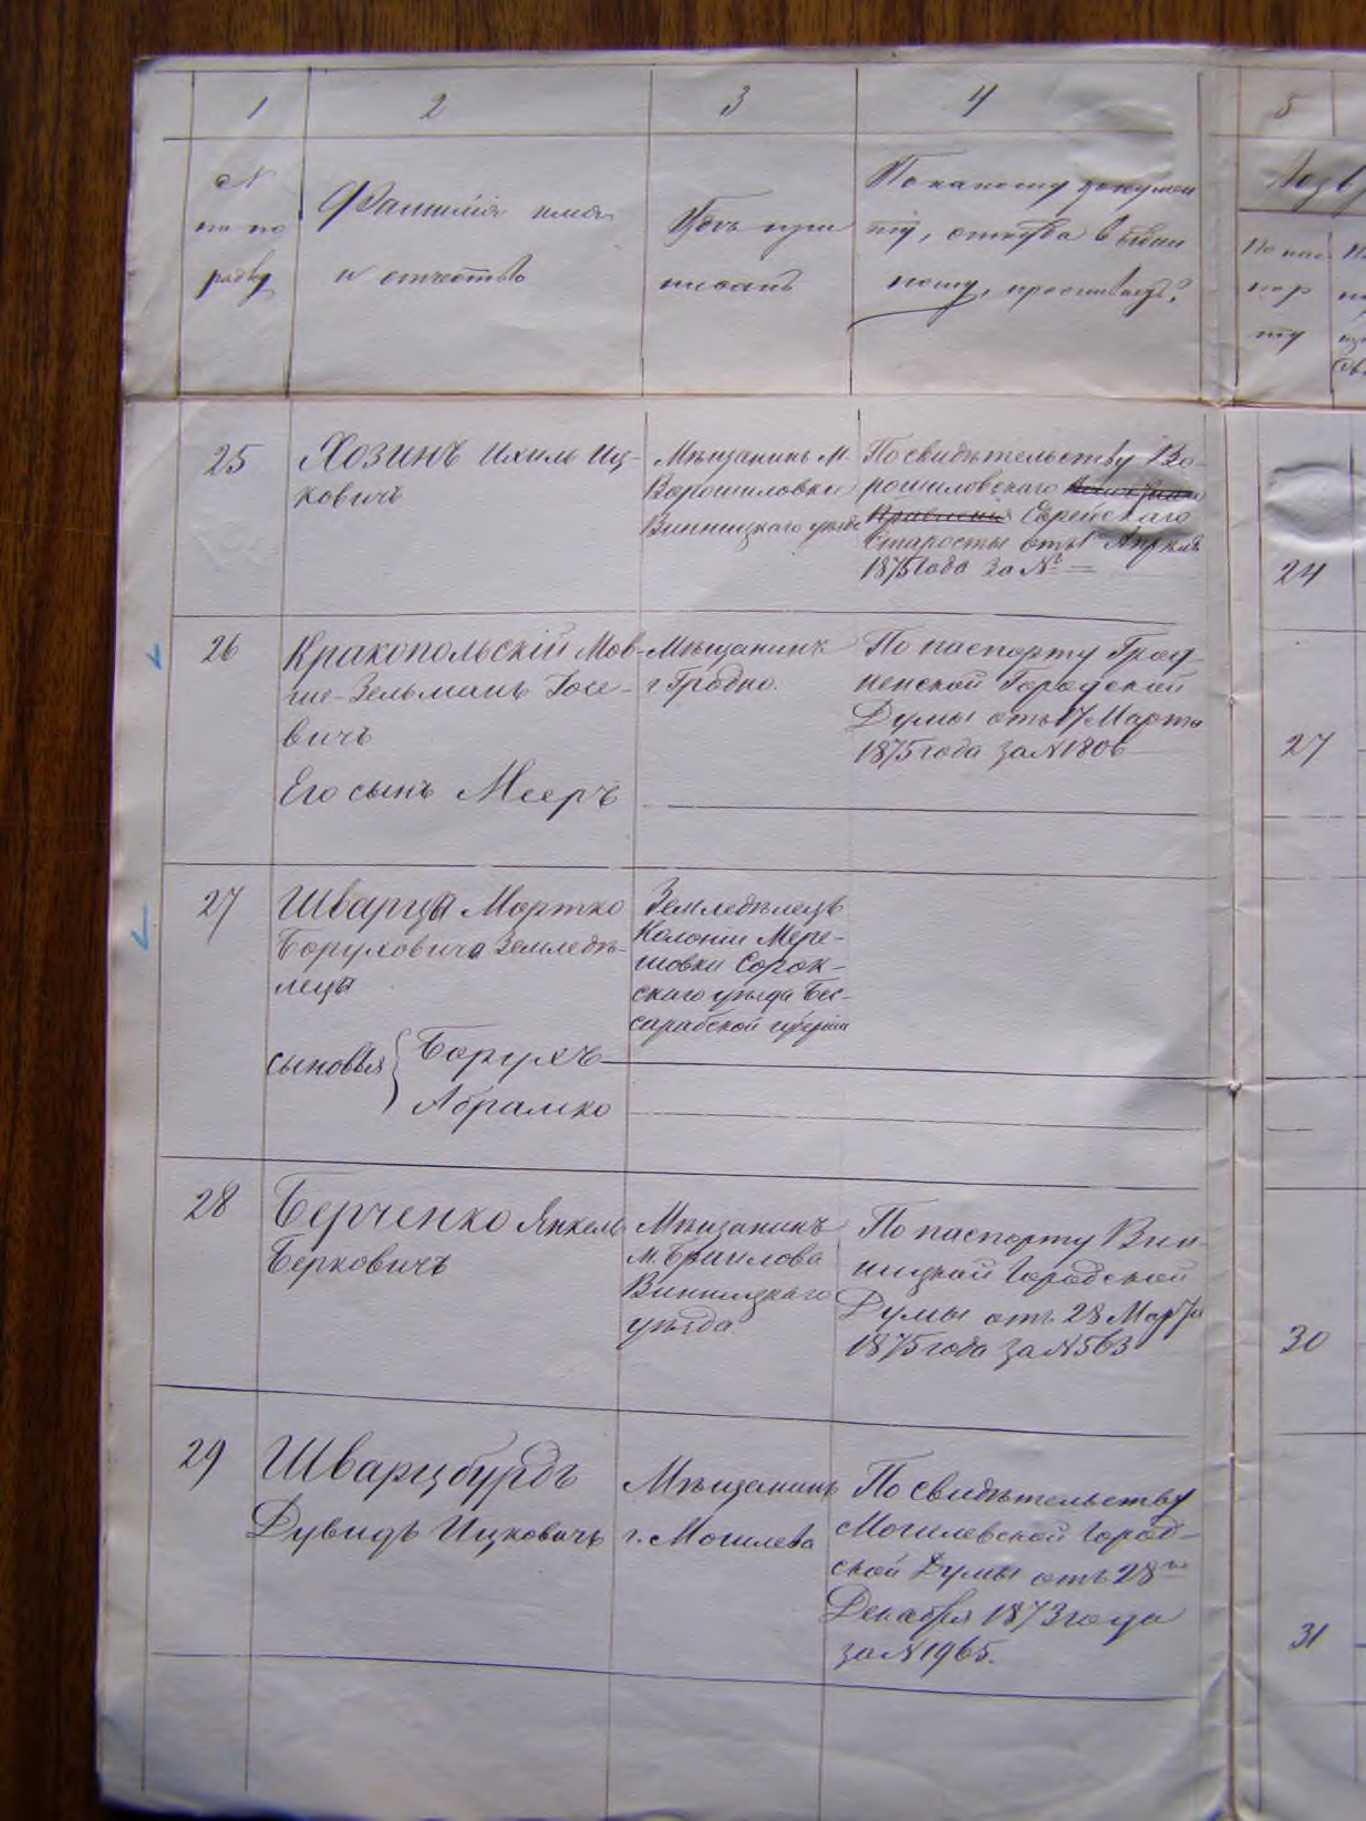 1 2 3 4 5
№ по по рядку
Фамилія имя и отчество
Гдѣ при писанъ
По какому докумен ту, откуда выдан ному, проживаетъ?
Возр
По пас пор ту
25
Хозинъ Ихиль Иц-
ковичъ
Мѣщанинъ М.
Ворошиловки
Винницкаго уѣзда
По свидѣтельству Во-
рошиловскаго
Правленія Еврейскаго
Старосты отъ 1 Апрѣля
1875 года за № —
24
26
Кракопольскій Мов-
ше-Зельманъ Іосе-
вичъ
Его сынъ Мееръ
Мѣщанинъ
г. Гродно.
По паспорту Грод-
ненской Городской
Думы отъ 17 Марта
1875 года за № 1806
27
27
Шварцы Мортко
Боруховича Земледѣ-
лецы
сыновья { Борухъ
Абрамко
Земледѣлецъ
Колоніи Мере-
шовки Сорок-
скаго уѣзда Бес-
сарабской губерніи
28
Берченко Янкель
Берковичъ
Мѣщанинъ
м. Браилова
Винницкаго
уѣзда.
По паспорту Вин-
ницкой Городской
Думы отъ 28 Марта
1875 года за № 563
30
29
Шварцбурдъ
Дувидъ Ицковичъ
Мѣщанинъ
г. Могилева
По свидѣтельству
Могилевской Город-
ской Думы отъ 28го
Декабря 1873 года
за № 1965.
31